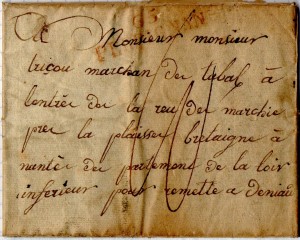 A Monsieur monsieur
tricou marchan de tabal à
lentrée de la reu de marchie
pres la plaisse bretaigne à
nantes de partement de la loir
inferieur pour remette a deniau